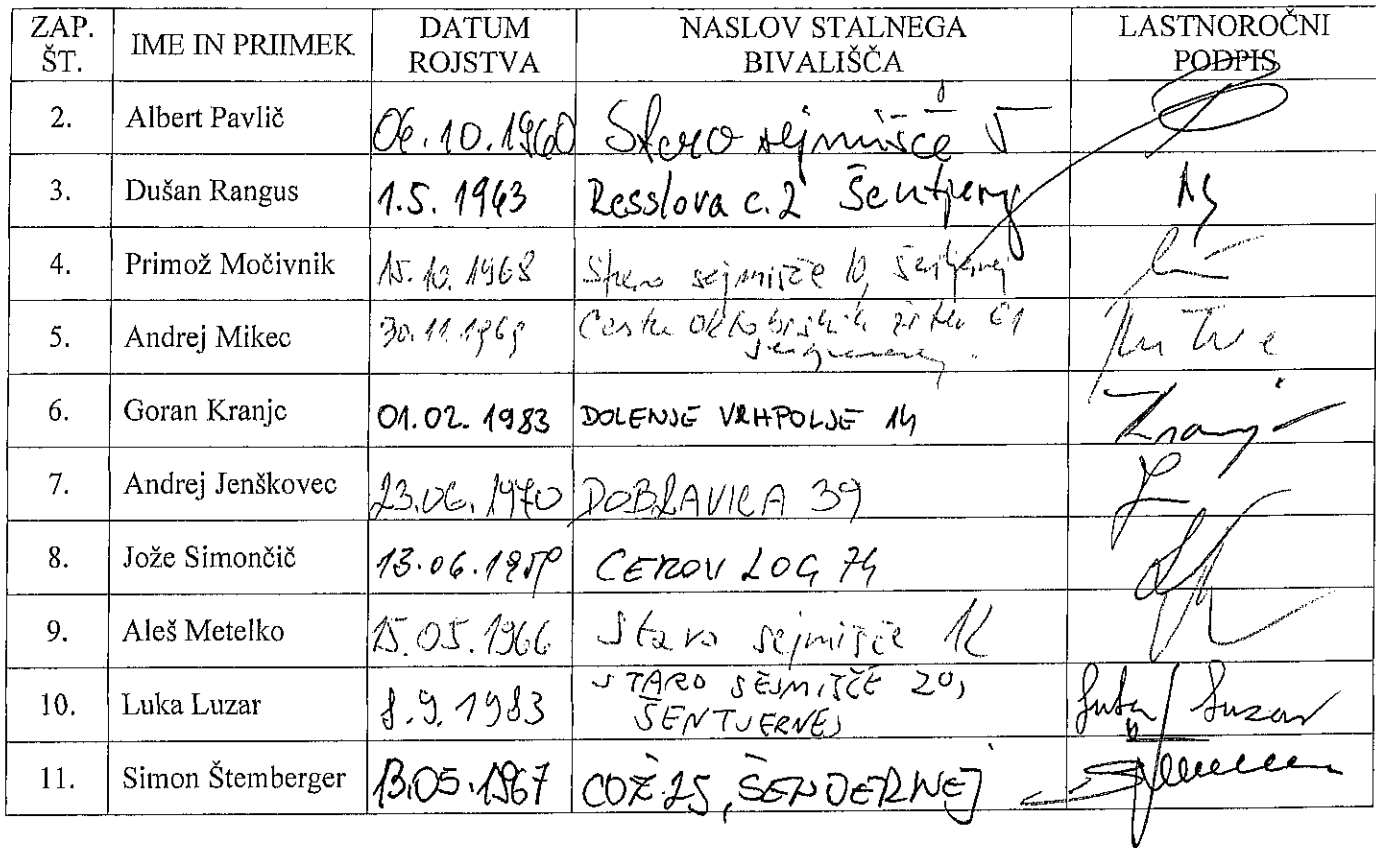 ZAP. ŠT. IME IN PRIIMEK DATUM ROJSTVA NASLOV STALNEGA BIVALIŠČA LASTNOROČNI PODPIS
2. Albert Pavlič 06.10.1960 Staro sejmišče 5
3. Dušan Rangus 1.5.1963 Resslova c. 2 Šentjernej
4. Primož Močivnik 15.10.1968 Staro sejmišče 10, Šentjernej
5. Andrej Mikec 30.11.1969 Cesta oktobrskih žrtev 61
Šentjernej
6. Goran Kranjc 01.02.1983 DOLENJE VRHPOLJE 14 Kranjc
7. Andrej Jenškovec 23.06.1970 DOBRAVICA 39
8. Jože Simončič 13.06.1959 CEROV LOG 74
9. Aleš Metelko 15.05.1966 Staro sejmišče 12
10. Luka Luzar 8.9.1983 STARO SEJMIŠČE 20, Luka Luzar
ŠENTJERNEJ
11. Simon Štemberger 13.05.1967 COŽ 25, ŠENDERNEJ